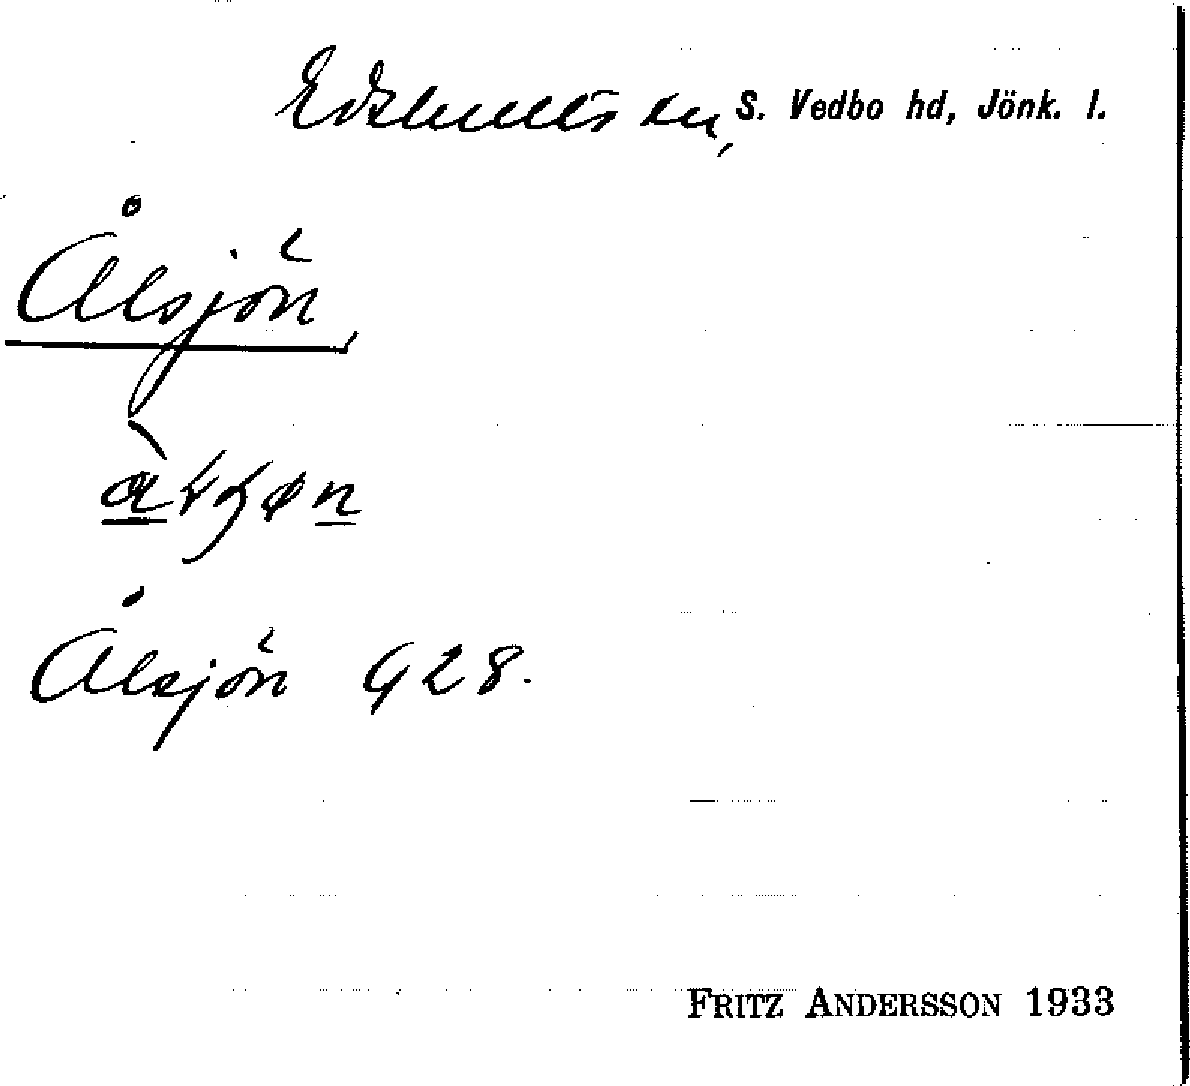 Edshults sn, S. Vedbo hd, Jönk. l.
Ålsjön,
Ålsjön G 28.
FRITZ ANDERSSON 1933